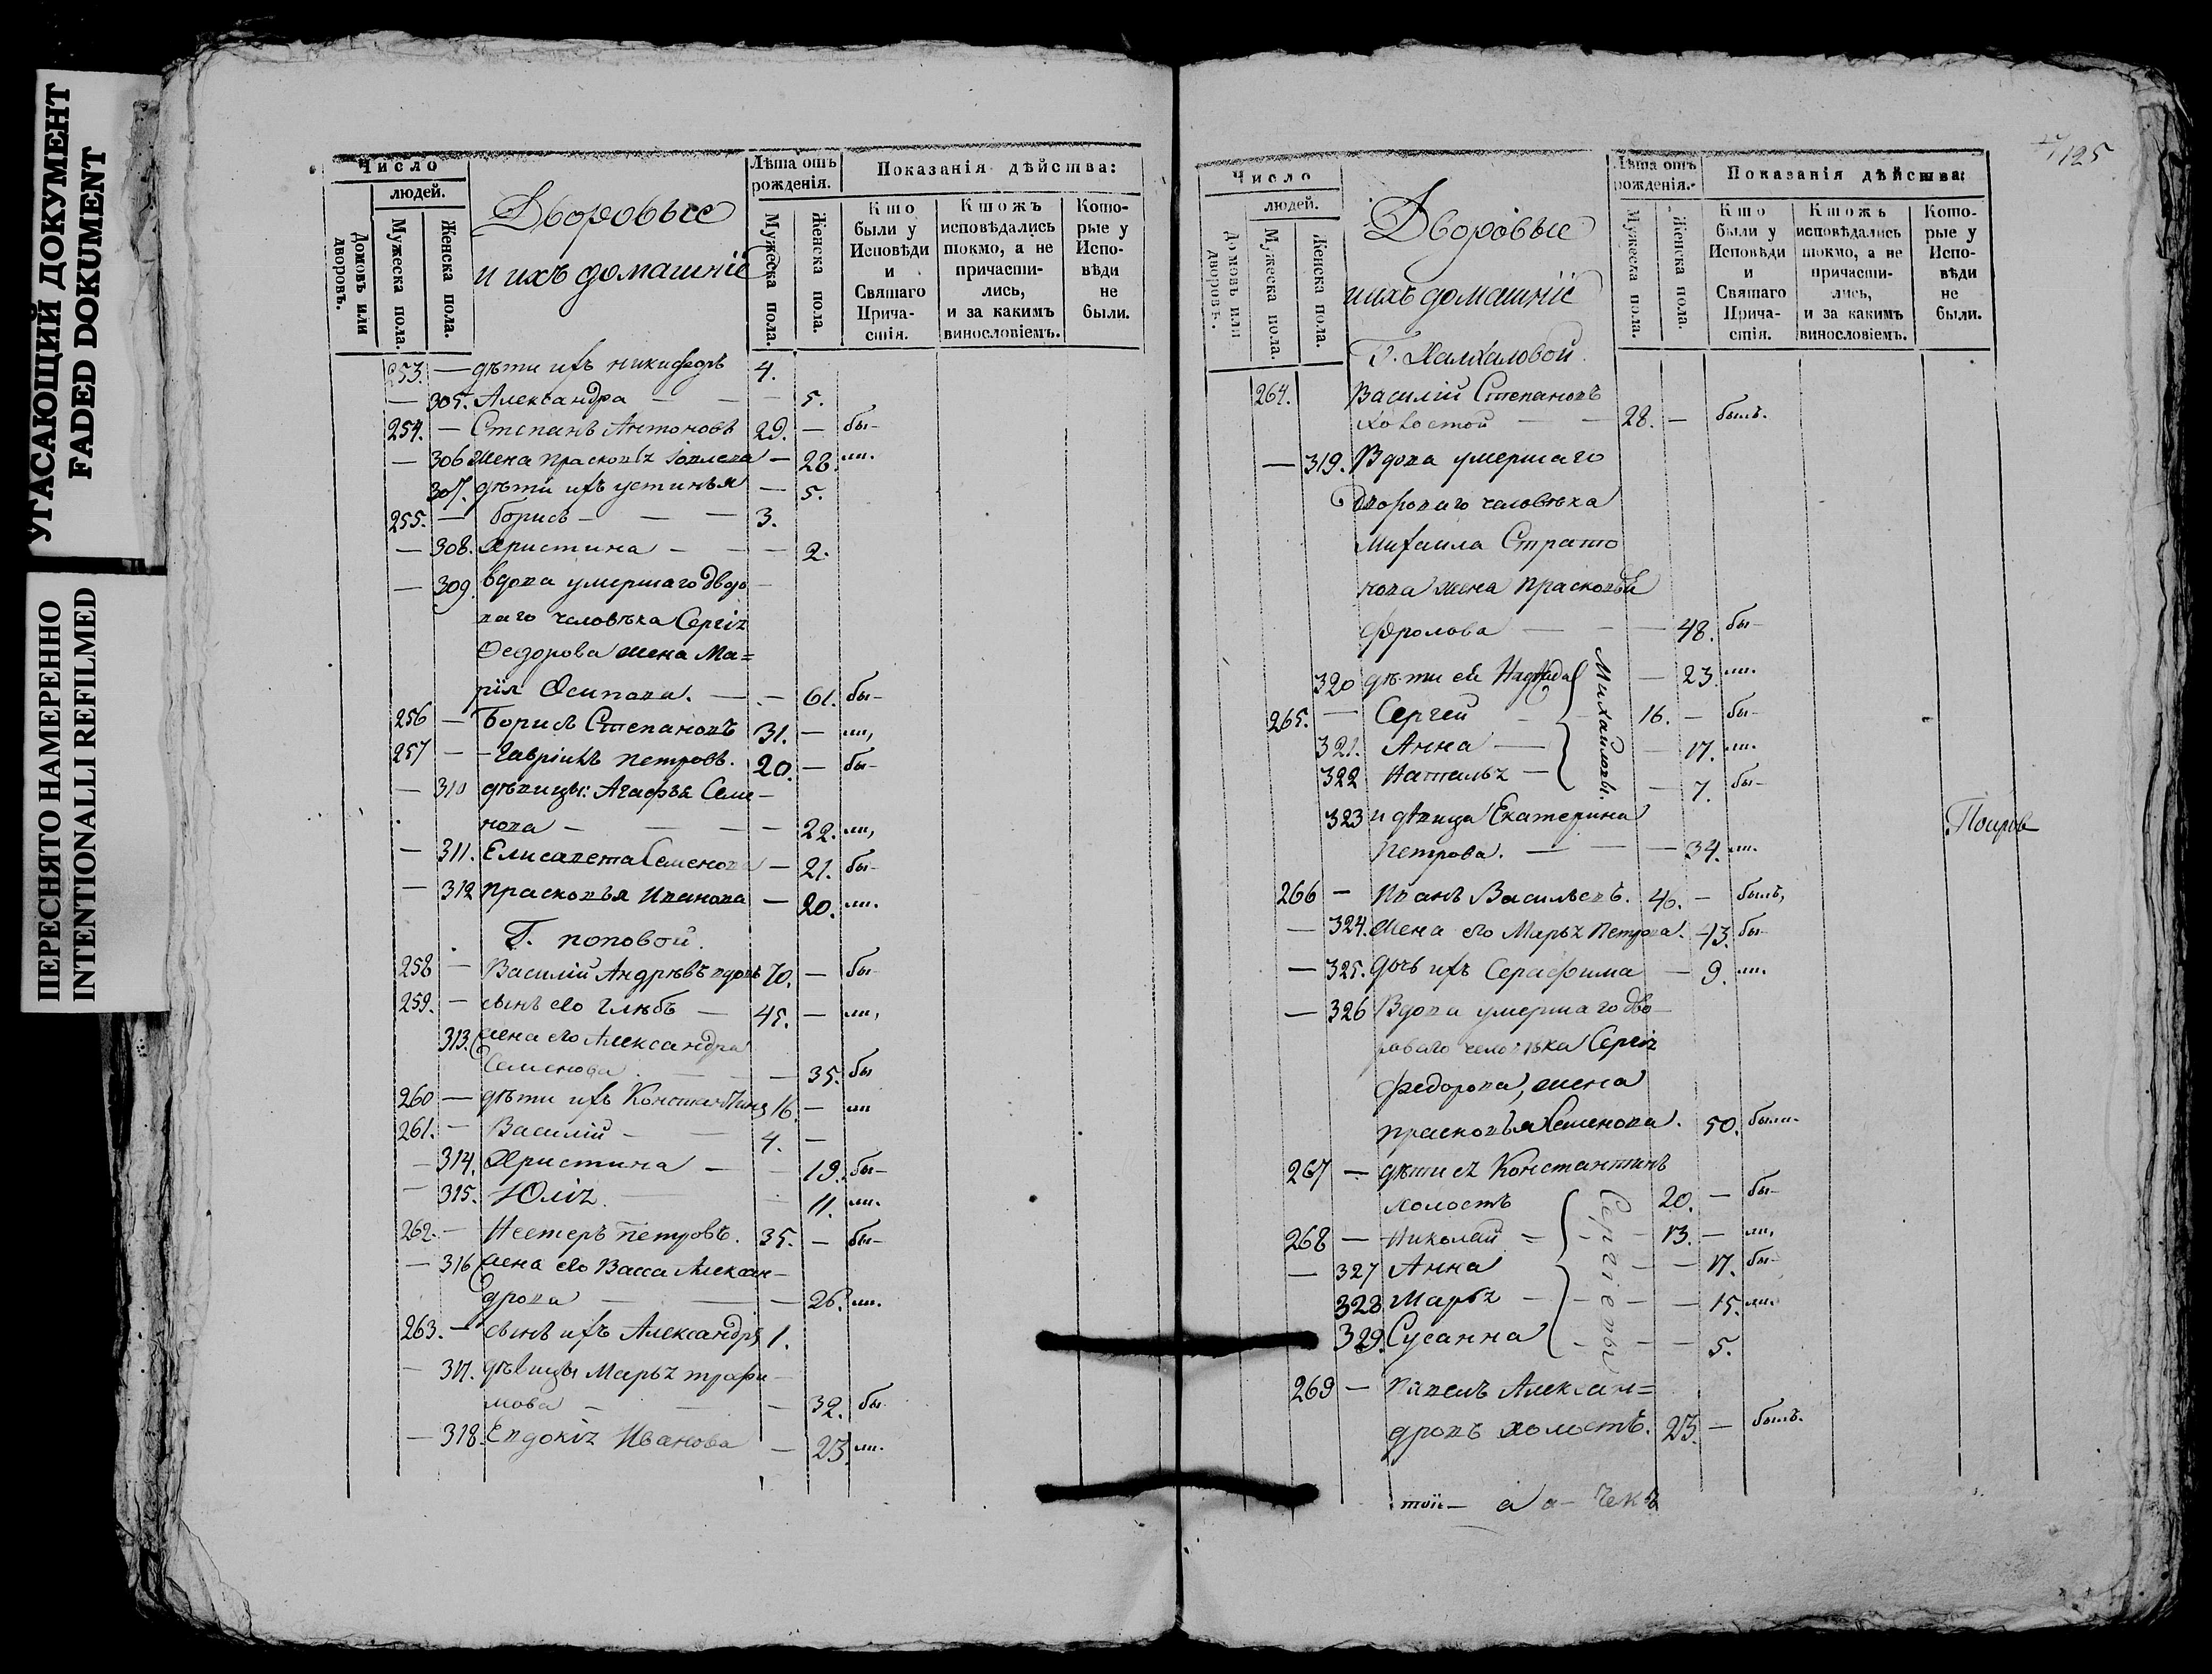 УГАСАЮЩИЙ ДОКУМЕНТ
FADED DOKUMENT
ПЕРЕСНЯТО НАМЕРЕННО
INTENTIONALLI REFILMED
Число
людей.
Домовъ или дворовъ.
Мужеска пола.
Женска пола.
Дворовые
и ихъ домашніе
Лѣта отъ рожденія.
Мужеска пола.
Женска пола.
Показанія дѣйства:
Кто были у Исповѣди и Святаго Прича-стія.
Ктожъ исповѣдались токмо, а не причасти-лись, и за какимъ винословіемъ.
Кото-рые у Испо-вѣди не были.
253. — дѣти ихъ Никифоръ 4.
— 305. Александра — — — 5.
254. — Степанъ Антоновъ 29. — бы-
— 306 Жена Прасковья — 28. ли.
307. дѣти ихъ Устинья — 5.
255. — Борисъ — — — 3.
— 308. Христина — — — 2.
— 309. вдова умершаго дворо-
ваго человѣка Сергія
Федорова жена Ма=
рія Осипова. — — 61. бы-
256 — Борисъ Степановъ 31. — ли,
257 — — Гавріилъ Петровъ. 20. — бы-
— 310 дѣвицы: Агафья Семе-
нова — — — — 22. ли,
— 311. Елисавета Семенова — 21. бы-
— 312 Прасковья Иванова — 20. ли.
Г. Поповой.
258 — Василій Андрѣевъ вдовъ 70. — бы-
259. — сынъ его Глѣбъ — 45. — ли,
313. жена его Александра
Семенова — — 35. бы
260 — дѣти ихъ Константинъ 16. — ли
261. — Василій — — 4. —
— 314. Христина — — 19. бы-
— 315. Юлія — — 11. ли.
262. — Нестеръ Петровъ. 35. — бы-
— 316 жена его Васса Алексан-
дрова — — — 26. ли.
263. — сынъ ихъ Александръ 1.
— 317. дѣвицы Марья Трофи-
мова — — — 32. бы-
— 318. Евдокія Иванова — 23. ли.
125
Число
людей.
Домовъ или дворовъ.
Мужеска пола.
Женска пола.
Дворовые
и ихъ домашніе
Лѣта отъ рожденія.
Мужеска пола.
Женска пола.
Показанія дѣйства:
Кто были у Исповѣди и Святаго Прича-стія.
Ктожъ исповѣдались токмо, а не причасти-лись, и за какимъ винословіемъ.
Кото-рые у Испо-вѣди не были.
264. Василій Степановъ
холостой — — 28. — былъ.
— 319. Вдова умершаго
дворопаго человѣка
Михаила
жена Прасковья
Фролова — — — 48. бы-
320 дѣти ея Надежда — 23. ли.
265. — Сергей — 16. — бы-
321. Анна — — 17. ли.
322 Наталья — — 7. бы-
Михайловы.
323 и дѣвица Екатерина
Петрова. — — — 34. ли.
266 — Иванъ Васильевъ. 46. — былъ,
— 324. Жена его Марья Петрова. 43. бы-
— 325. дочь ихъ Серафима — 9. ли.
— 326 Вдова умершаго дво-
роваго человѣка Сергія
Федорова, жена
Прасковья Семенова. 50. были.
267 — дѣти ея Константинъ
холостъ 20. — бы-
268 — Николай = 13. — ли,
— 327 Анна — — 17. бы-
328 Марья — — — 15. ли.
329. Сусанна — — — 5.
Сергеевы
269 — Павелъ Алексан=
дровъ холостъ. 23. — былъ.